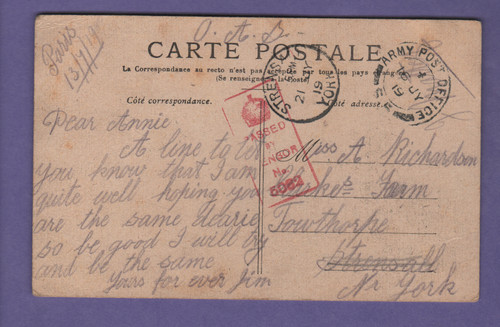 O. A. S.
Paris
CARTE POSTALE
La Correspondance au recto n'est pas acceptée par tous les pays étrangers
(Se renseigner à la Poste)
Côté correspondance.
Côté adresse.
STRENSALL
YORK
21
19
ARMY POST OFFICE
19
PASSED
BY
CENSOR
No
5082
Dear Annie
A line to let
you know that I am
quite well hoping you
are the same dearie
so be good I will try
and be the same
Yours for ever Jim
Miss A. Richardson
Farm
Towthorpe
Strensall
Nr York